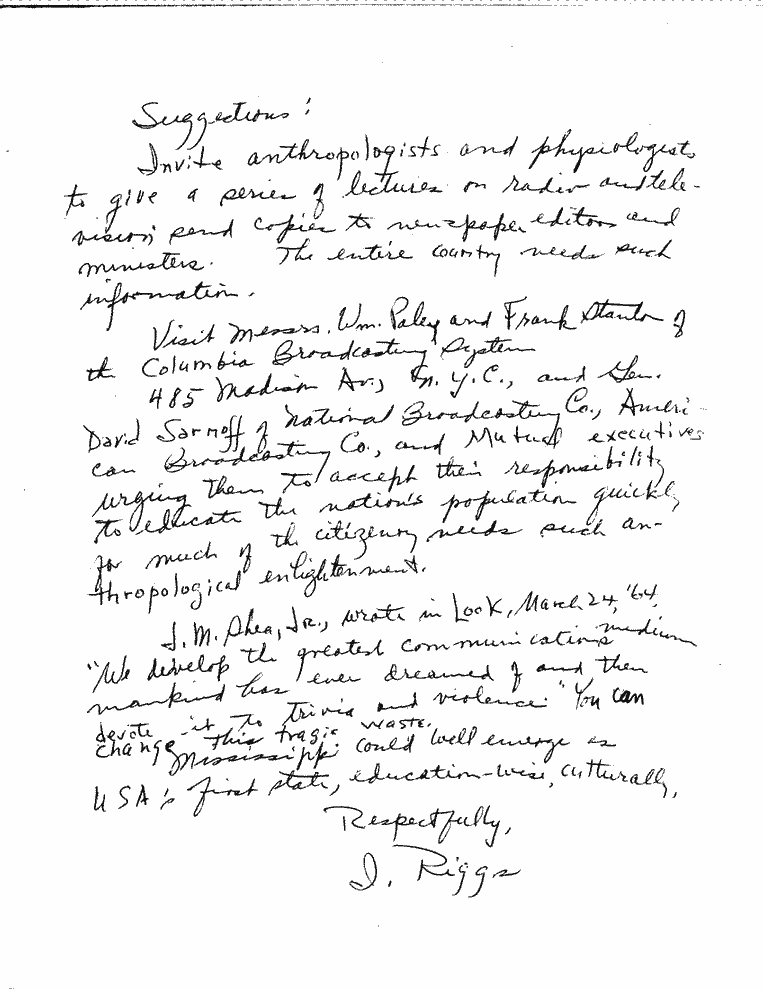 Suggestions:
Invite anthropologists and physiologists
to give a series of lectures on radio and tele-
vision; send copies to newspaper editors and
ministers. The entire country needs such
information.
Visit Messrs. Wm. Paley and Frank Stanton of
the Columbia Broadcasting System
485 Madison Av., N.Y.C., and Gen.
David Sarnoff of National Broadcasting Co., Ameri-
can Broadcasting Co., and Mutual executives
urging them to accept their responsibility
to educate the nation's population quickly
for much of the citizenry needs such an-
thropological enlightenment.
J. M. Shea, Jr., wrote in Look, March 24, '64,
"We develop the greatest communications medium
mankind has ever dreamed of and then
devote it to trivia and violence." You can
change this tragic waste.
Mississippi could well emerge as
USA's first state, education-wise, culturally,
Respectfully,
I. Riggs